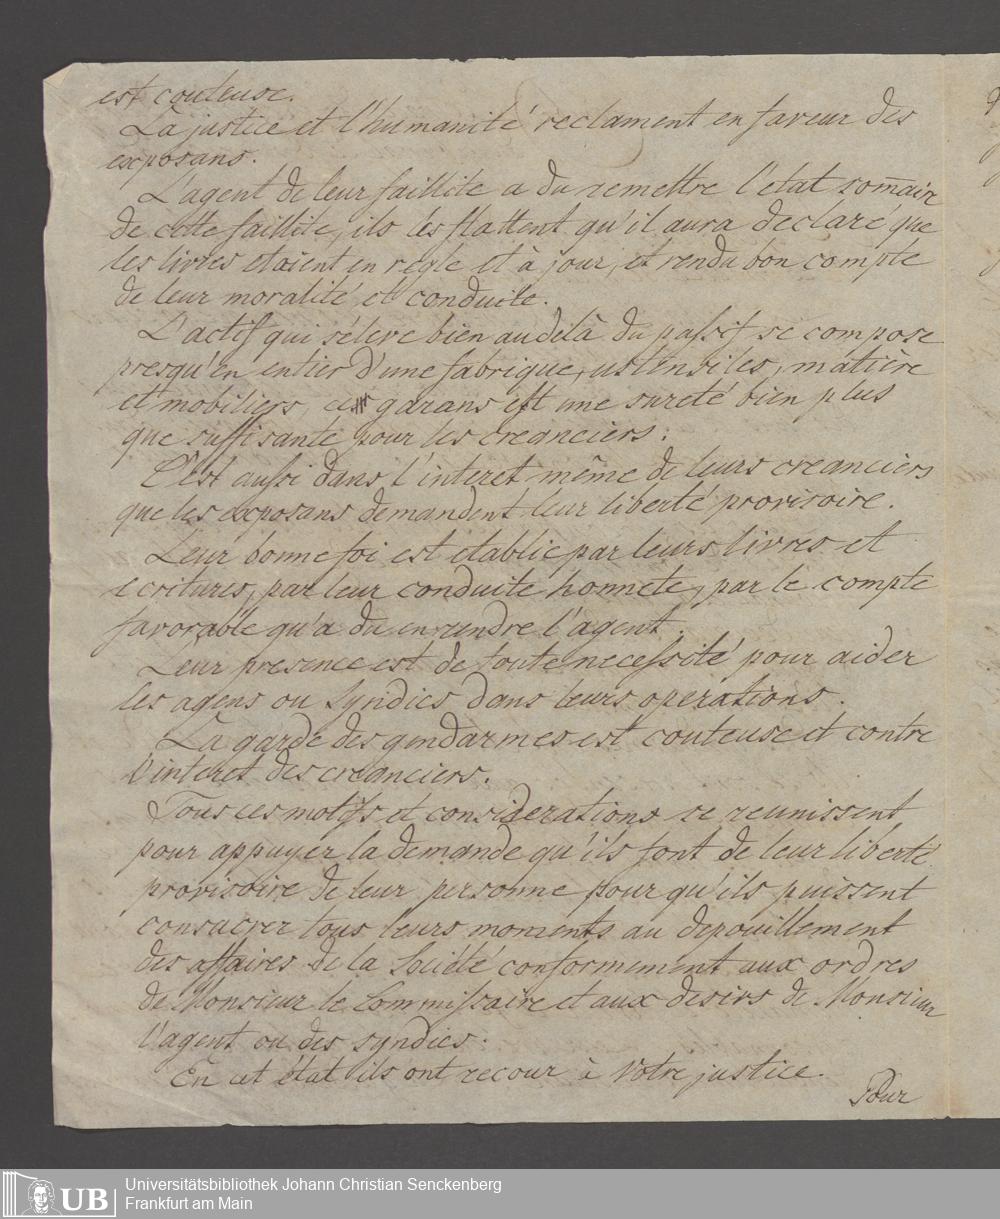 est couteuse.
La justice et l'humanité reclament en faveur des
exposans.
L'agent de leur faillite a du remettre l'etat som̄air
de cette faillite, ils les flattent qu'il aura declaré que
les livres etoient en régle et à jour, et rendu bon compte
de leur moralité et conduite.
L'actif qui s'éleve bien au delà du passif se compose
presqu'en entier d'une fabrique, ustensiles, matière
et mobiliers, garans est une sureté bien plus
que suffisante pour les creanciers.
C'est aussi dans l'interet même de leurs creanciers
que les exposans demandent leur liberté provisoire.
Leur bonne foi est établie par leurs livres et
ecritures, par leur conduite honnete, par le compte
favorable qu'a du en rendre l'agent
Leur presence est de toute necessité pour aider
les agens ou Syndics dans leurs operations.
La garde des gendarmes est couteuse et contre
l'interet des creanciers.
Tous ces motifs et considerations se reunissent
pour appuyer la demande qu'ils font de leur liberté
provisoire de leur personne pour qu'ils puissent
consacrer tous leurs moments au depouillement
des affaires de la Société conformement aux ordres
de Monsieur le Commissaire et aux desirs de Monsieur
l'agent ou des syndics.
En cet état ils ont recour à Votre justice.
Pour
UB
Universitätsbibliothek Johann Christian Senckenberg
Frankfurt am Main